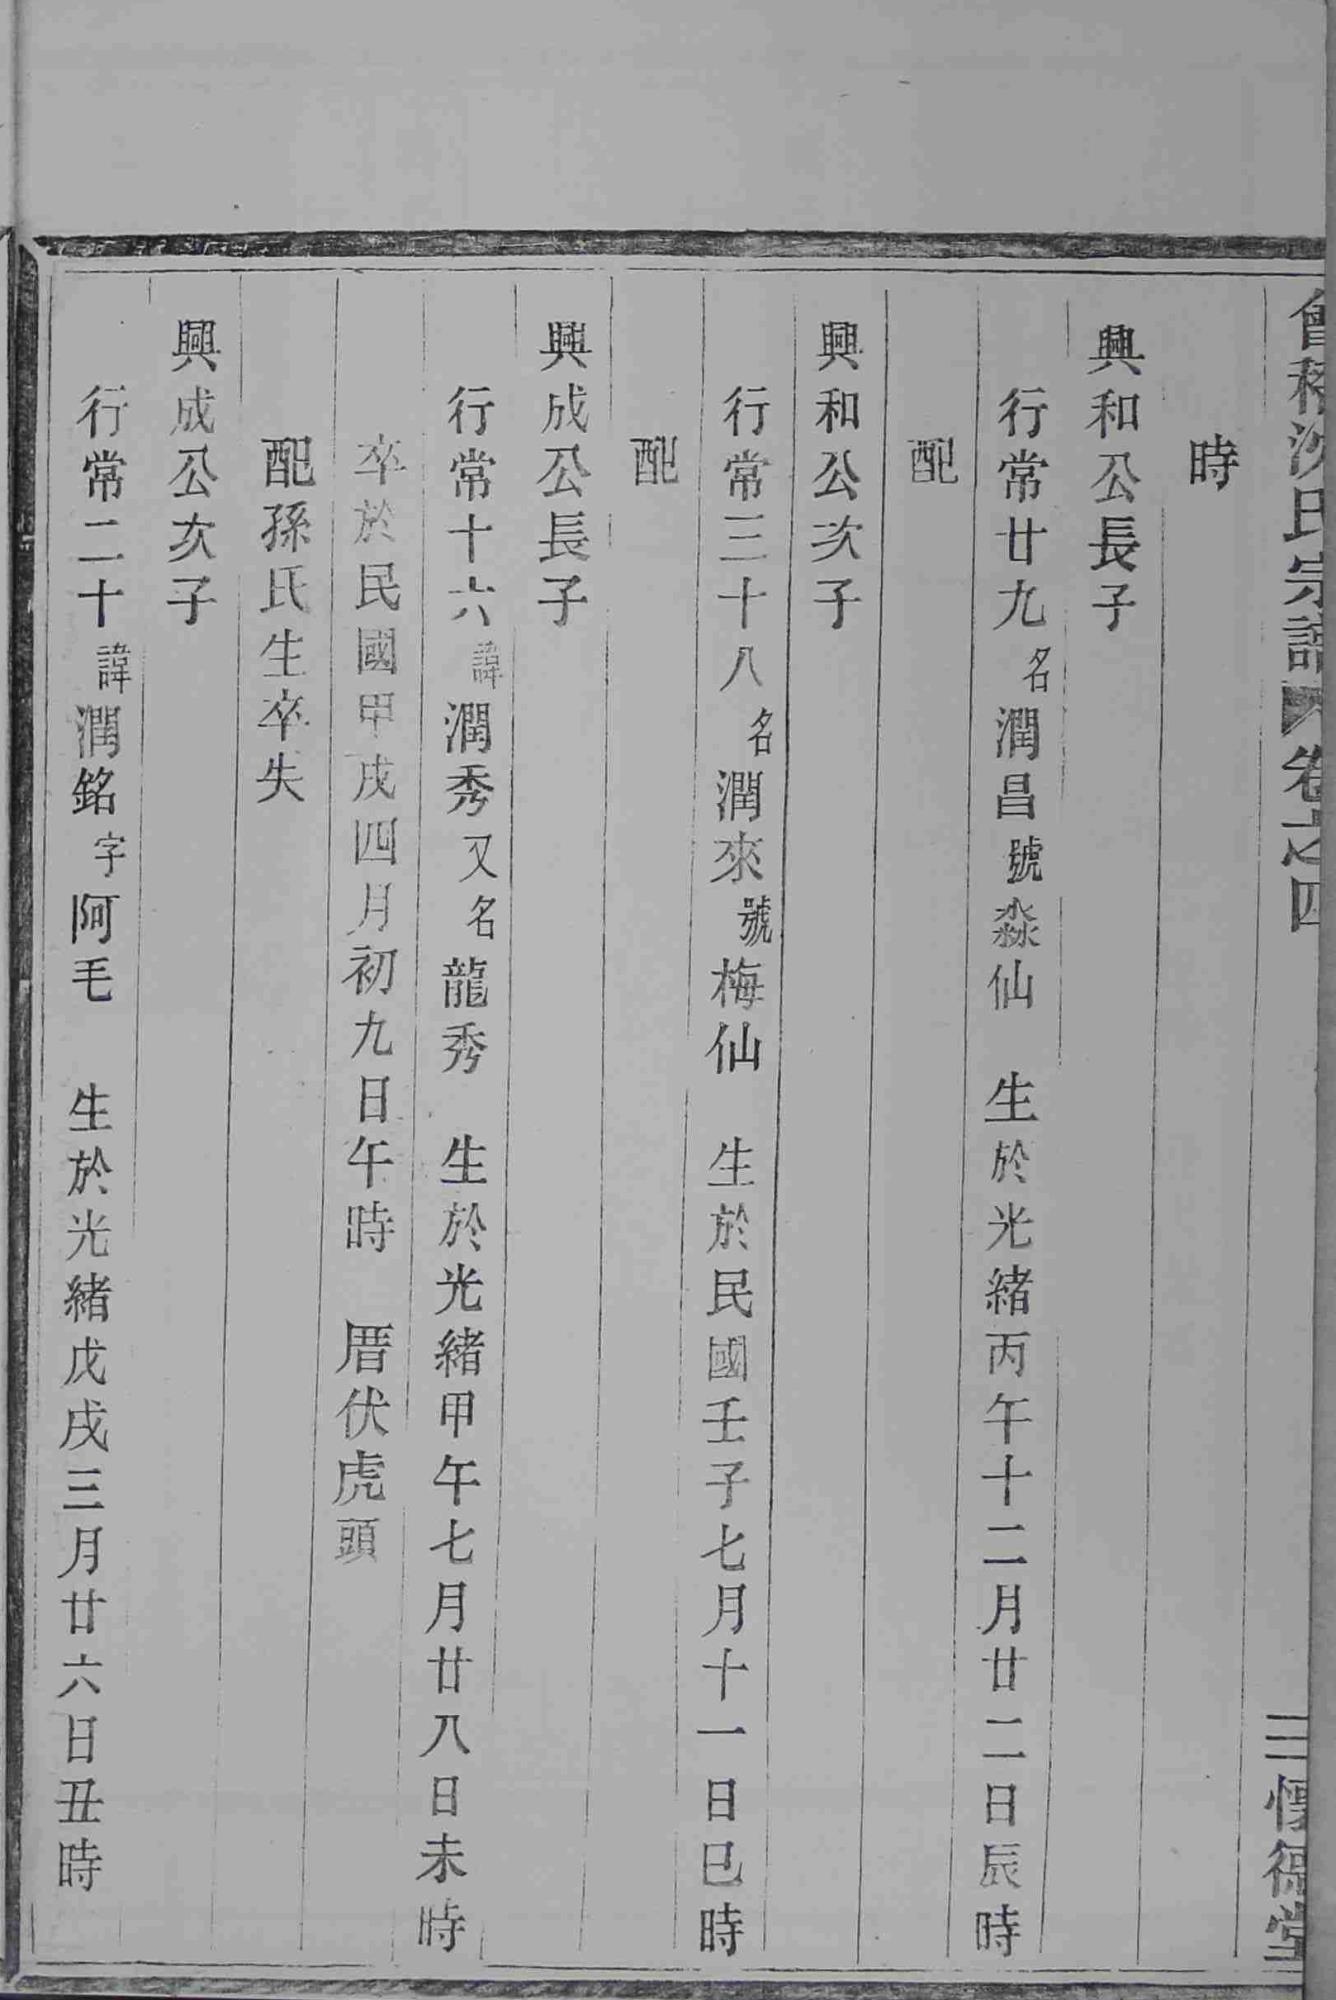 會稽沈氏宗譜 卷之四 三 懷德堂
時
興和公長子
行常廿九名潤昌號淼仙 生於光緒丙午十二月廿二日辰時
配
興和公次子
行常三十八名潤來號梅仙 生於民國壬子七月十一日巳時
配
興成公長子
行常十六諱潤秀又名龍秀 生於光緒甲午七月廿八日未時
卒於民國甲戌四月初九日午時 厝伏虎頭
配孫氏生卒失
興成公次子
行常二十諱潤銘字阿毛 生於光緒戊戌三月廿六日丑時